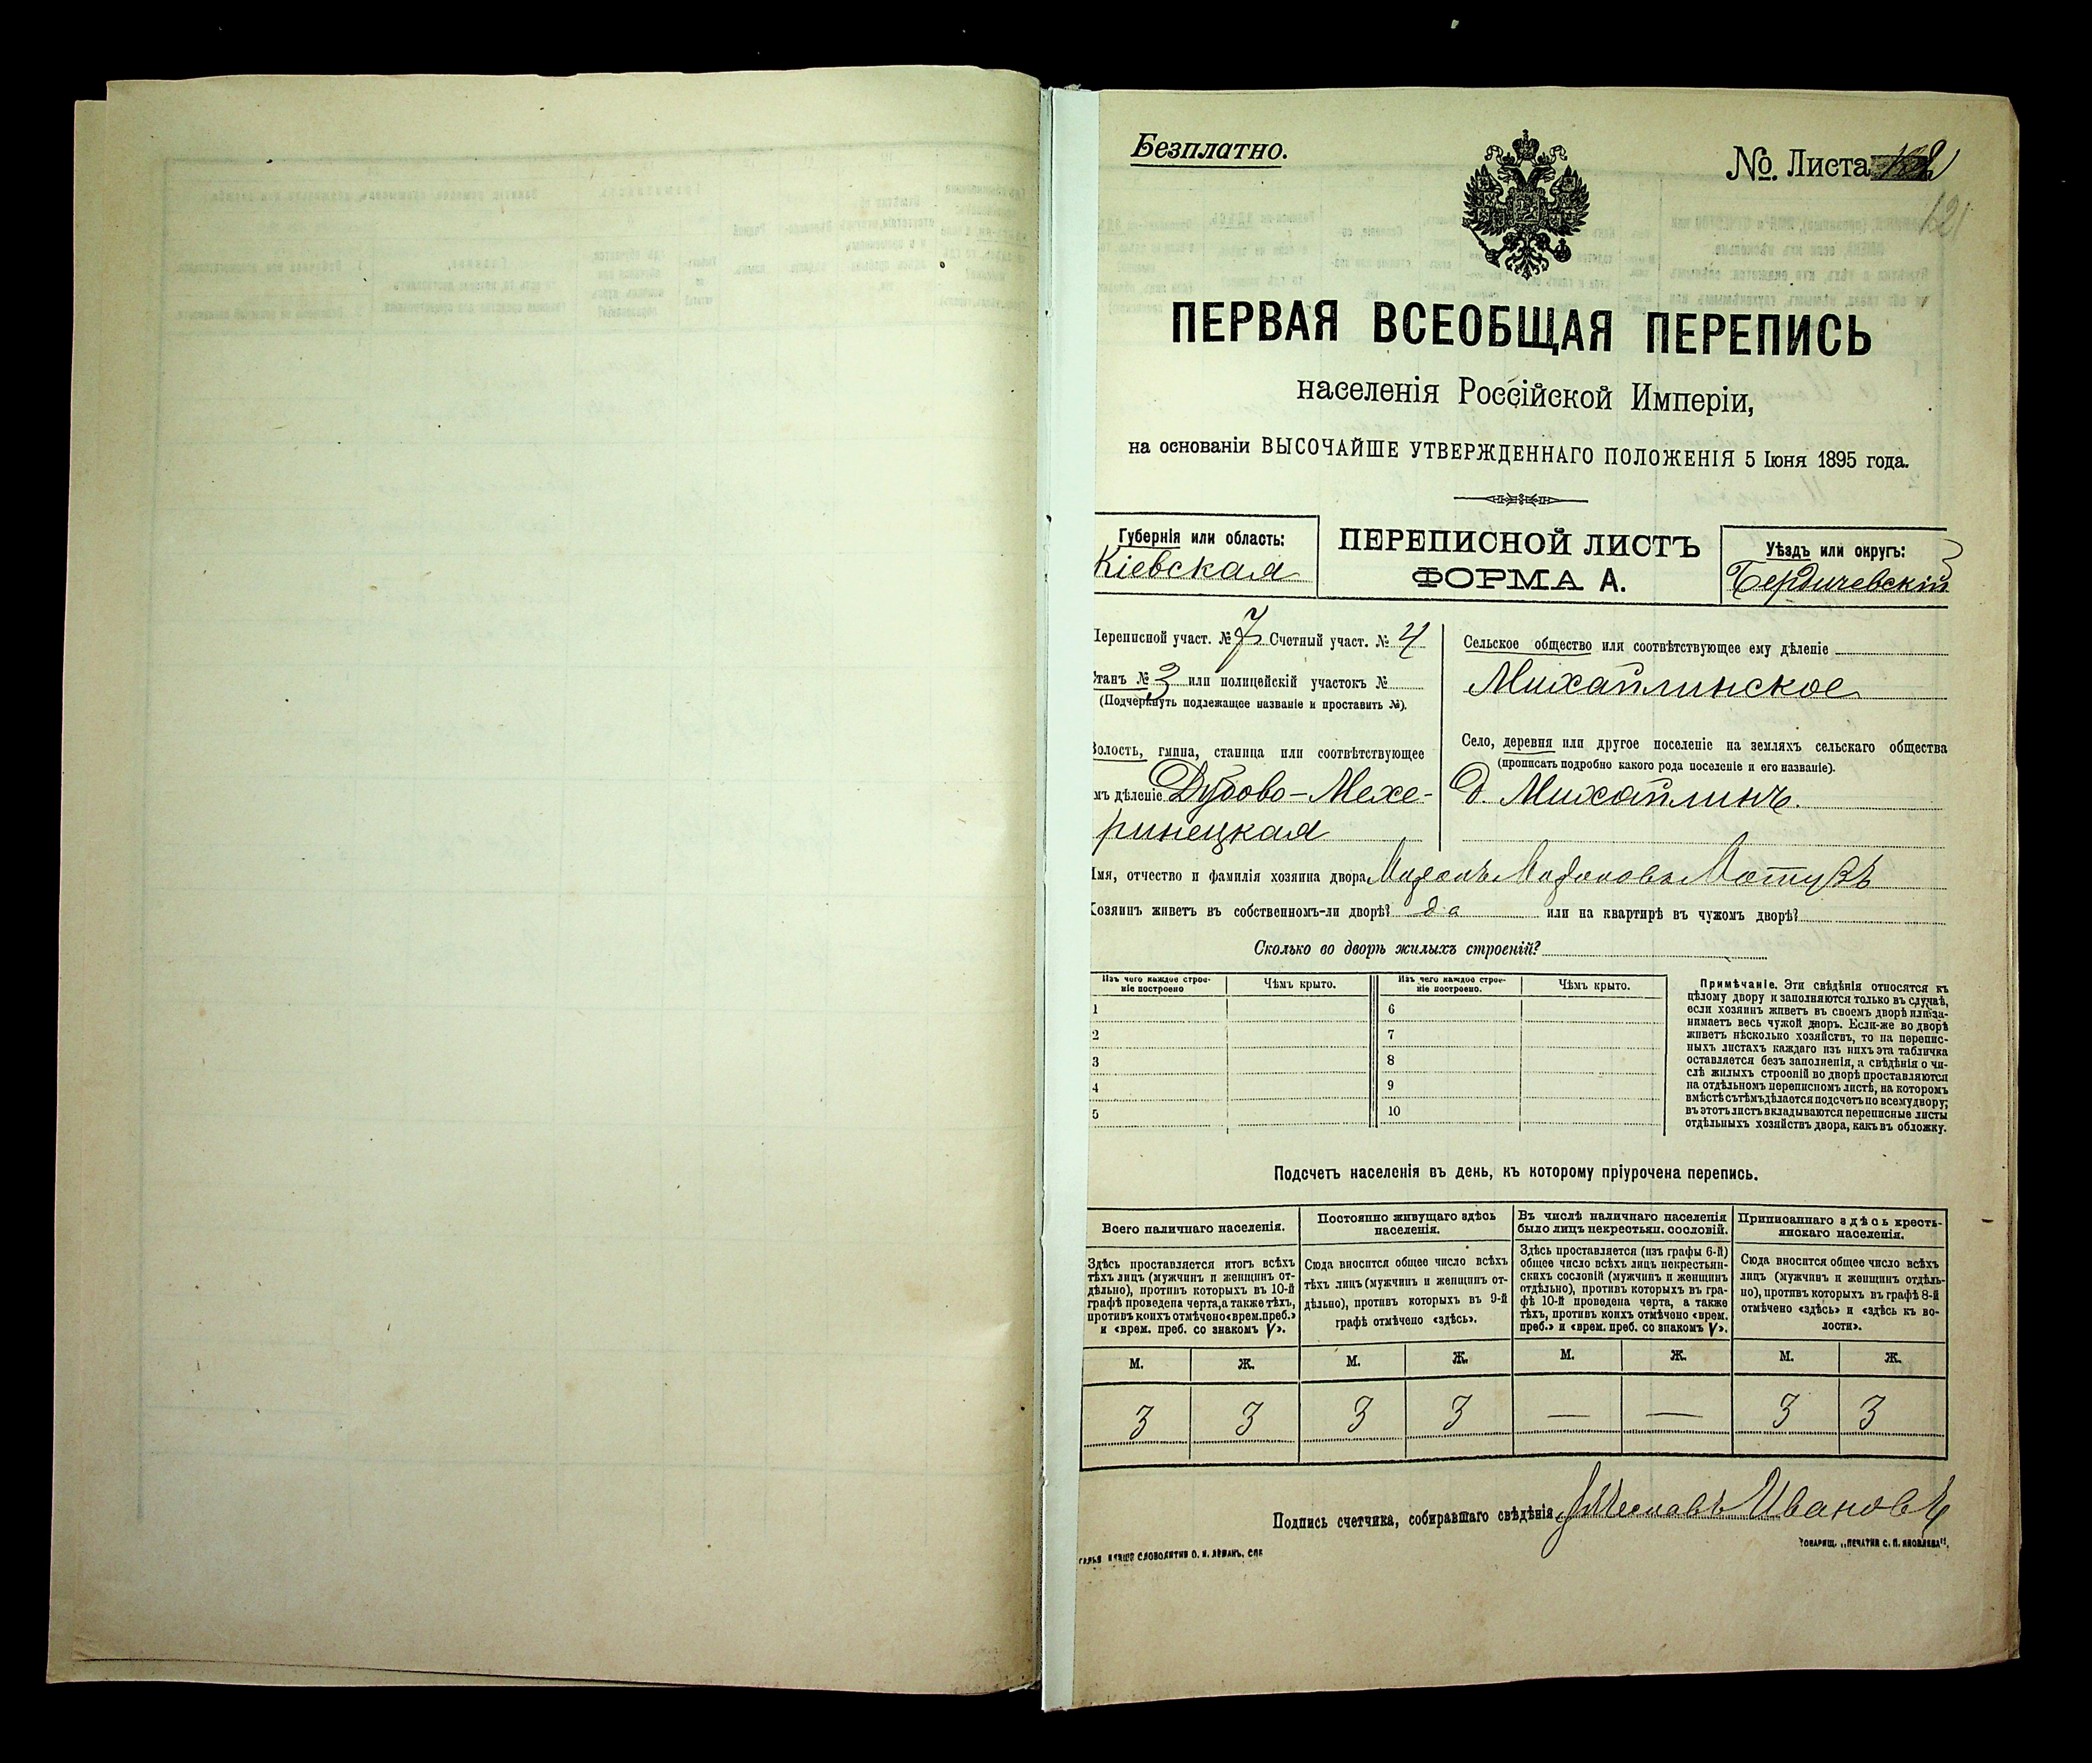 Безплатно.
№. Листа
ПЕРВАЯ ВСЕОБЩАЯ ПЕРЕПИСЬ
населенія Россійской Имперіи,
на основаніи ВЫСОЧАЙШЕ УТВЕРЖДЕННАГО ПОЛОЖЕНІЯ 5 Іюня 1895 года.
Губернія или область:
Кіевская
ПЕРЕПИСНОЙ ЛИСТЪ
ФОРМА А.
Уѣздъ или округъ:
Бердичевскій
Переписной участ. № 7 Счетный участ. № 4
Станъ № 3 или полицейскій участокъ №
(Подчеркнуть подлежащее названіе и проставить №).
Волость, гмина, станица или соотвѣтствующее
имъ дѣленіе Дубово-Мехе-
ринецкая
Сельское общество или соотвѣтствующее ему дѣленіе
Михайлинское
Село, деревня или другое поселеніе на земляхъ сельскаго общества
(прописать подробно какого рода поселеніе и его названіе).
д. Михайлинъ.
Имя, отчество и фамилія хозяина двора
Хозяинъ живетъ въ собственномъ-ли дворѣ? да или на квартирѣ въ чужомъ дворѣ?
Сколько во дворѣ жилыхъ строеній?
Изъ чего каждое строе-
ніе построено
Чѣмъ крыто.
Изъ чего каждое строе-
ніе построено.
Чѣмъ крыто.
1 6
2 7
3 8
4 9
5 10
Примѣчаніе. Эти свѣдѣнія относятся къ
цѣлому двору и заполняются только въ случаѣ,
если хозяинъ живетъ въ своемъ дворѣ или за-
нимаетъ весь чужой дворъ. Если-же во дворѣ
живетъ нѣсколько хозяйствъ, то на перепис-
ныхъ листахъ каждаго изъ нихъ эта табличка
оставляется безъ заполненія, а свѣдѣнія о чи-
слѣ жилыхъ строеній во дворѣ проставляются
на отдѣльномъ переписномъ листѣ, на которомъ
вмѣстѣ съ тѣмъ дѣлается подсчетъ по всему двору;
въ этотъ листъ вкладываются переписные листы
отдѣльныхъ хозяйствъ двора, какъ въ обложку.
Подсчетъ населенія въ день, къ которому пріурочена перепись.
Всего наличнаго населенія.
Постоянно живущаго здѣсь
населенія.
Въ числѣ наличнаго населенія
было лицъ некрестьян. сословій.
Приписаннаго здѣсь кресть-
янскаго населенія.
Здѣсь проставляется итогъ всѣхъ
тѣхъ лицъ (мужчинъ и женщинъ от-
дѣльно), противъ которыхъ въ 10-й
графѣ проведена черта, а также тѣхъ,
противъ коихъ отмѣчено «врем. преб.»
и «врем. преб. со знакомъ V».
Сюда вносится общее число всѣхъ
тѣхъ лицъ (мужчинъ и женщинъ от-
дѣльно), противъ которыхъ въ 9-й
графѣ отмѣчено «здѣсь».
Здѣсь проставляется (изъ графы 6-й)
общее число всѣхъ лицъ некрестьян-
скихъ сословій (мужчинъ и женщинъ
отдѣльно), противъ которыхъ въ гра-
фѣ 10-й проведена черта, а также
тѣхъ, противъ коихъ отмѣчено «врем.
преб.» и «врем. преб. со знакомъ V».
Сюда вносится общее число всѣхъ
лицъ (мужчинъ и женщинъ отдѣль-
но), противъ которыхъ въ графѣ 8-й
отмѣчено «здѣсь» и «здѣсь къ во-
лости».
М. Ж. М. Ж. М. Ж. М. Ж.
3 3 3 3 — — 3 3
Подпись счетчика, собиравшаго свѣдѣнія Ивановъ
СЛОВОЛИТНИ О. И. ЛЕМАНЪ, СПБ
ТОВАРИЩ. „ПЕЧАТНЯ С. П. ЯКОВЛЕВА".